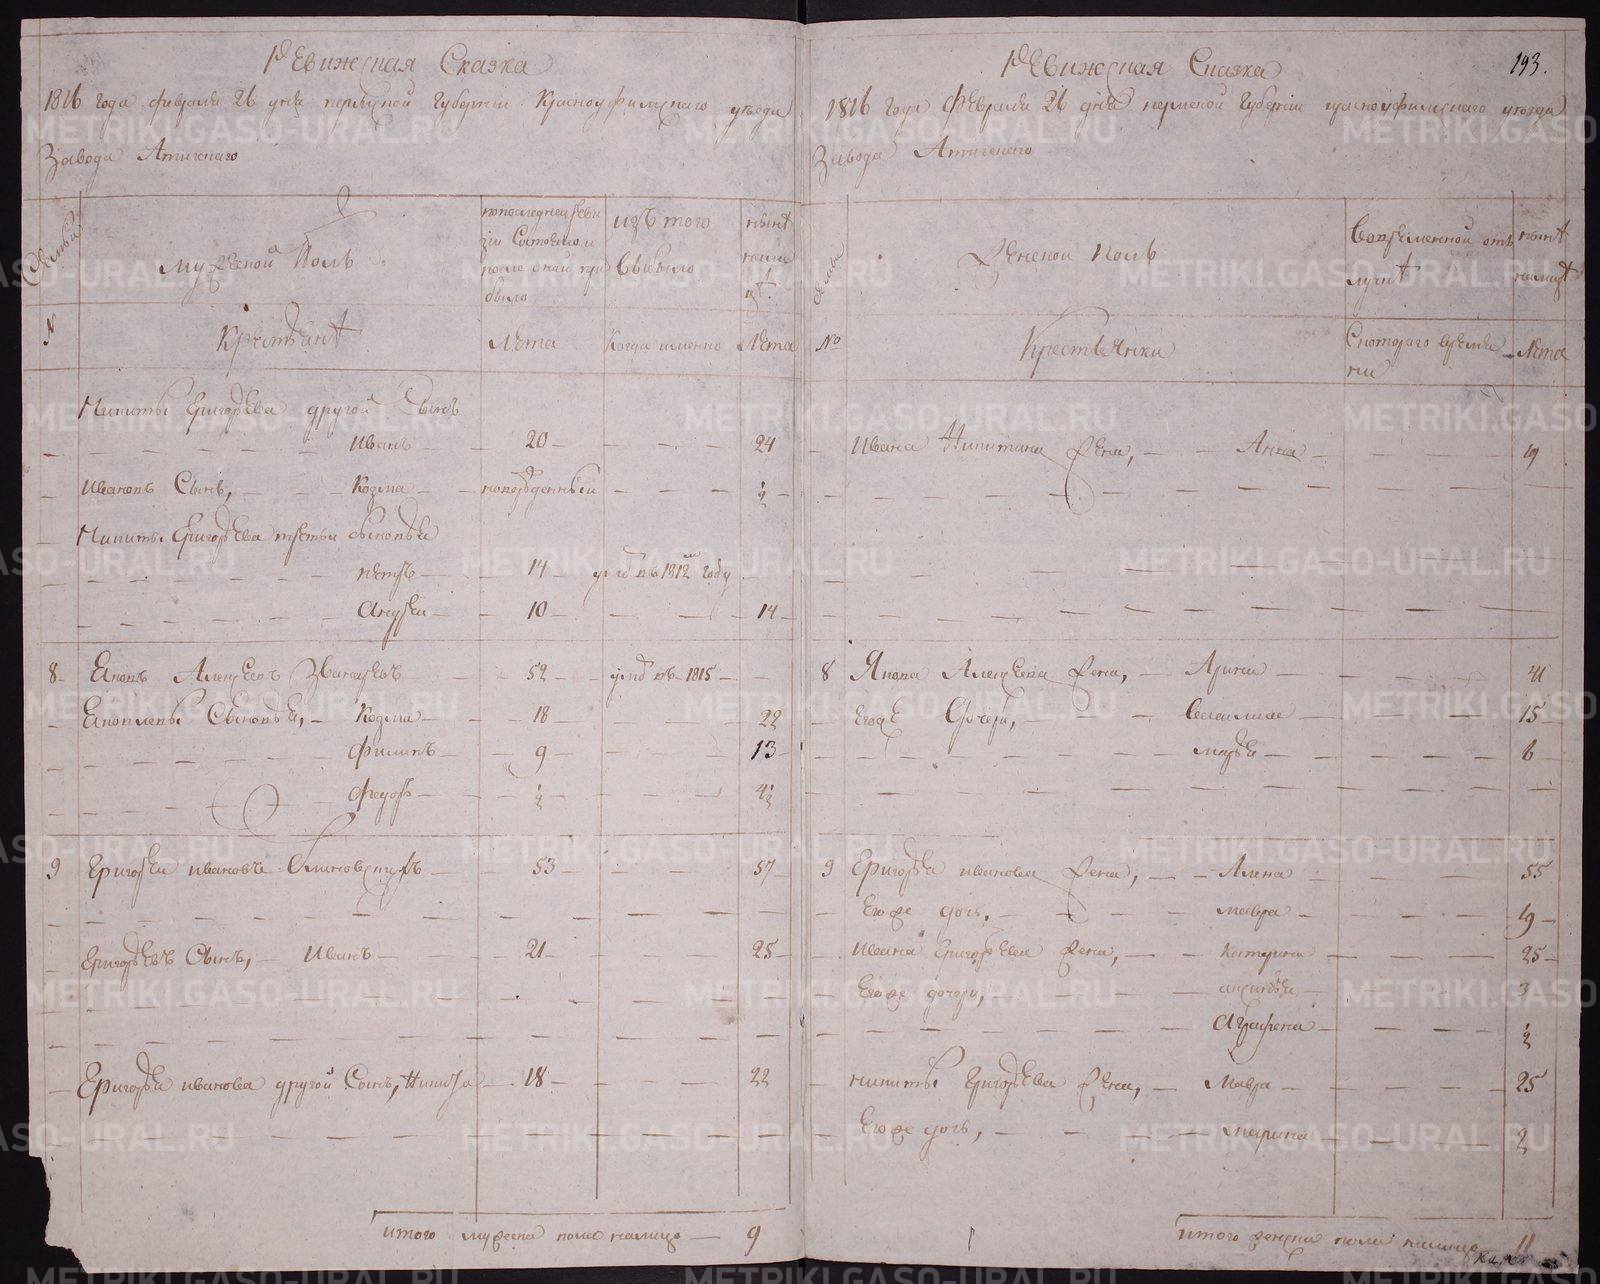 Ревижская Сказка
1816 года февраля 26 дня пермской Губернии Красноуфимскаго уезда
Завода Атигскаго
Семьи
мужеской Полъ
попоследней реви
зіи Состояло и
после оной при
было
изъ того
выбыло
ныне
налицѣ
№
Крестьянѣ
Лета
Когда именно
Лета
Никиты Григорьева другой Сынъ
Иванъ 20 24
Ивановъ Сынъ, Козма новорожденный ½
Никиты Григорьева третьи Сыновья
петръ 14 умре въ 1812м году
Андреи 10 14
8 Яковъ Алексеевъ 52 умре въ 1815
Яковлевы Сыновья, Козма 18 22
Филипъ 9 13
Федоръ ½ 4½
9 Григореи ивановъ 53 57
Григорьевъ Сынъ, Иванъ 21 25
Григорья иванова другой Сынъ, Никита 18 22
итого мужеска пола налицо 9
193.
Ревижская Сказка
1816 года Февраля 26 дня пермской Губерніи красноуфимскаго уезда
Завода Атигскаго
Семьи
Женской полъ
Вовременной отъ
лучкѣ
ныне
налицѣ
№
Крестьянки
Скотораго време
ни
Лета
Ивана Никитина жена, Анна 19
8 Якова Алексеева жена, Арина 41
Егоже дочери, 15
марья 6
9 Григорья иванова жена, Алена 55
Егоже дочь, мавра 19
Ивана Григорьева жена, Катерина 25
Егоже дочери, 3
Аграфена ½
никиты Григорьева жена, Мавра 25
Егоже дочь, марина 2
итого женска пола налицо 11
METRIKI.GASO-URAL.RU